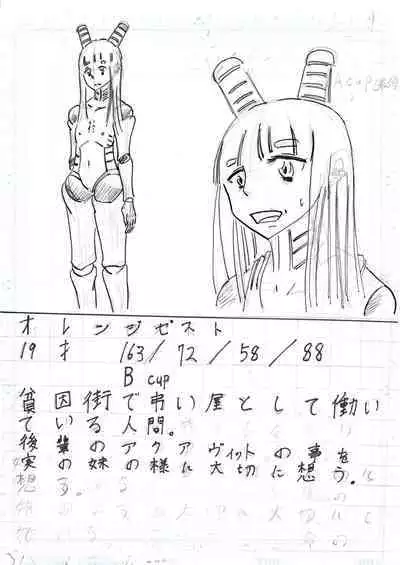 オレンジゼスト
19才 163/72/58/88
B cup
貧困街で弔い屋として働い
ている人間。
後輩のアクアヴィットの事を
実の妹の様に大切に想う。